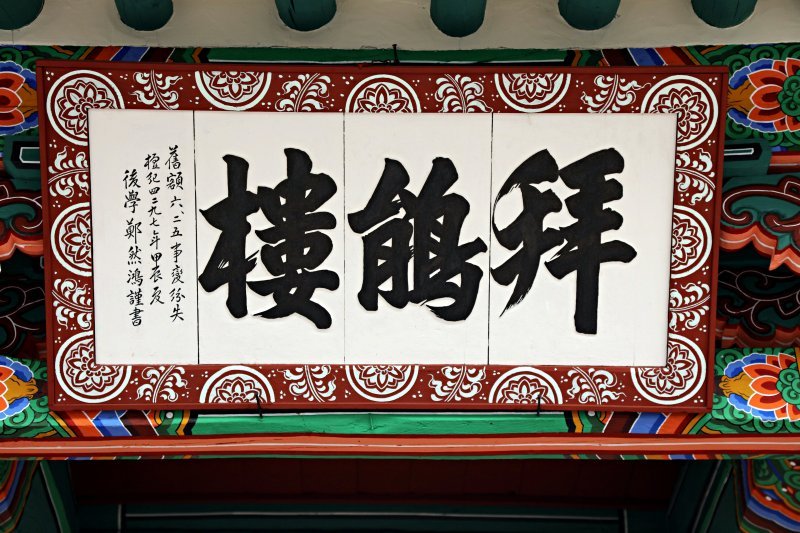 拜鵑樓
舊額六、二五事變紛失
檀紀四二九七年甲辰夏
後學鄭然鴻謹書